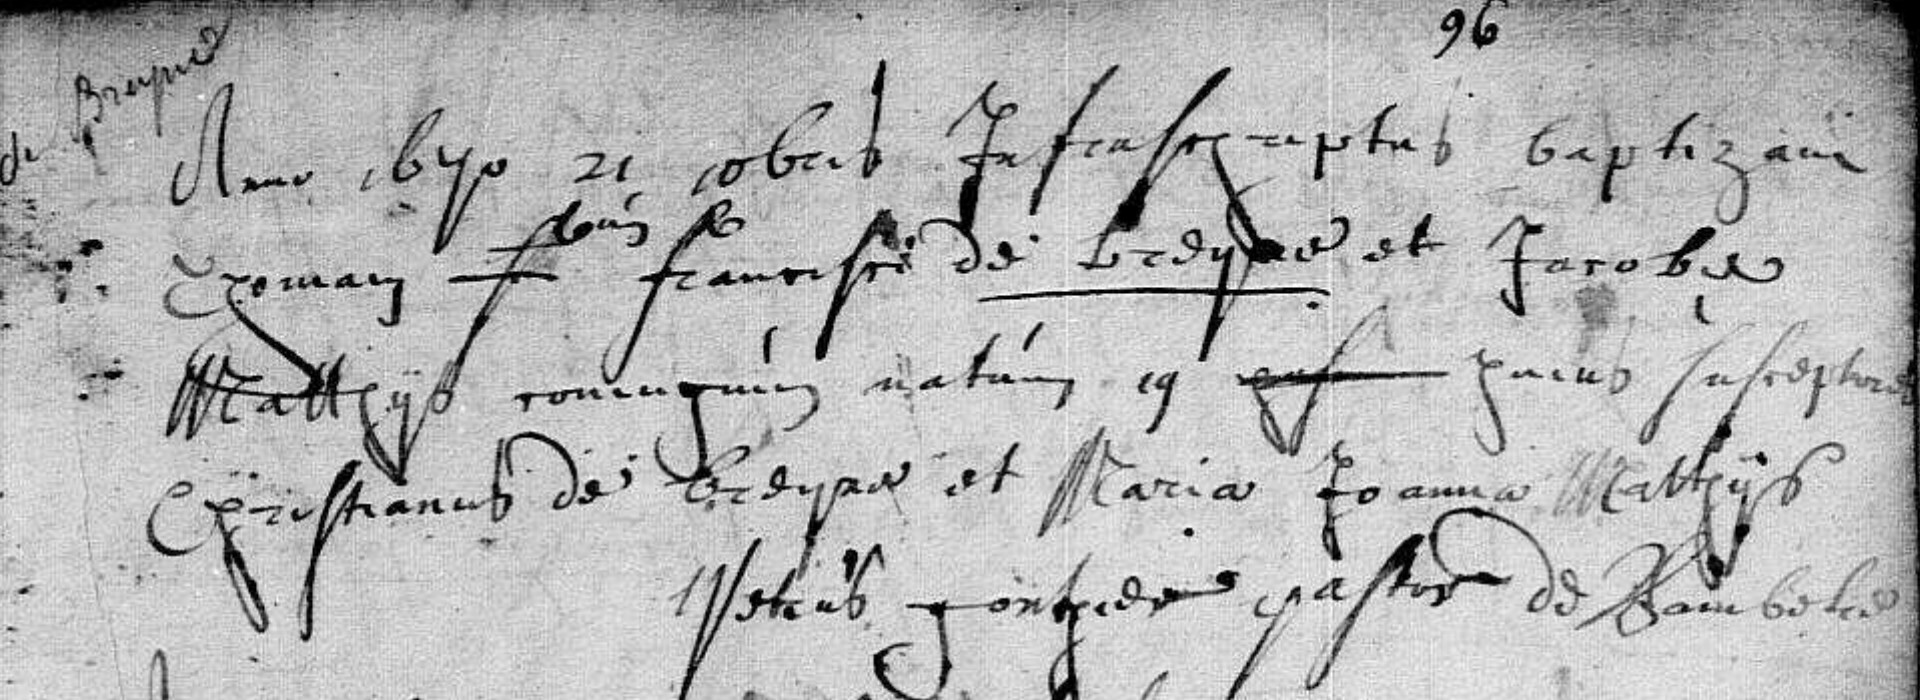 96
de Breyne
Anno 1690 21 10bris Infrascriptus baptizavi
Thomam f fam̄ francisci de breyne et Jacobæ
Matthijs coniugum natum 19 huius susceptores
Christianus de breyne et Maria Joanna Matthijs
Petrus gonthier pastor de Rambeke